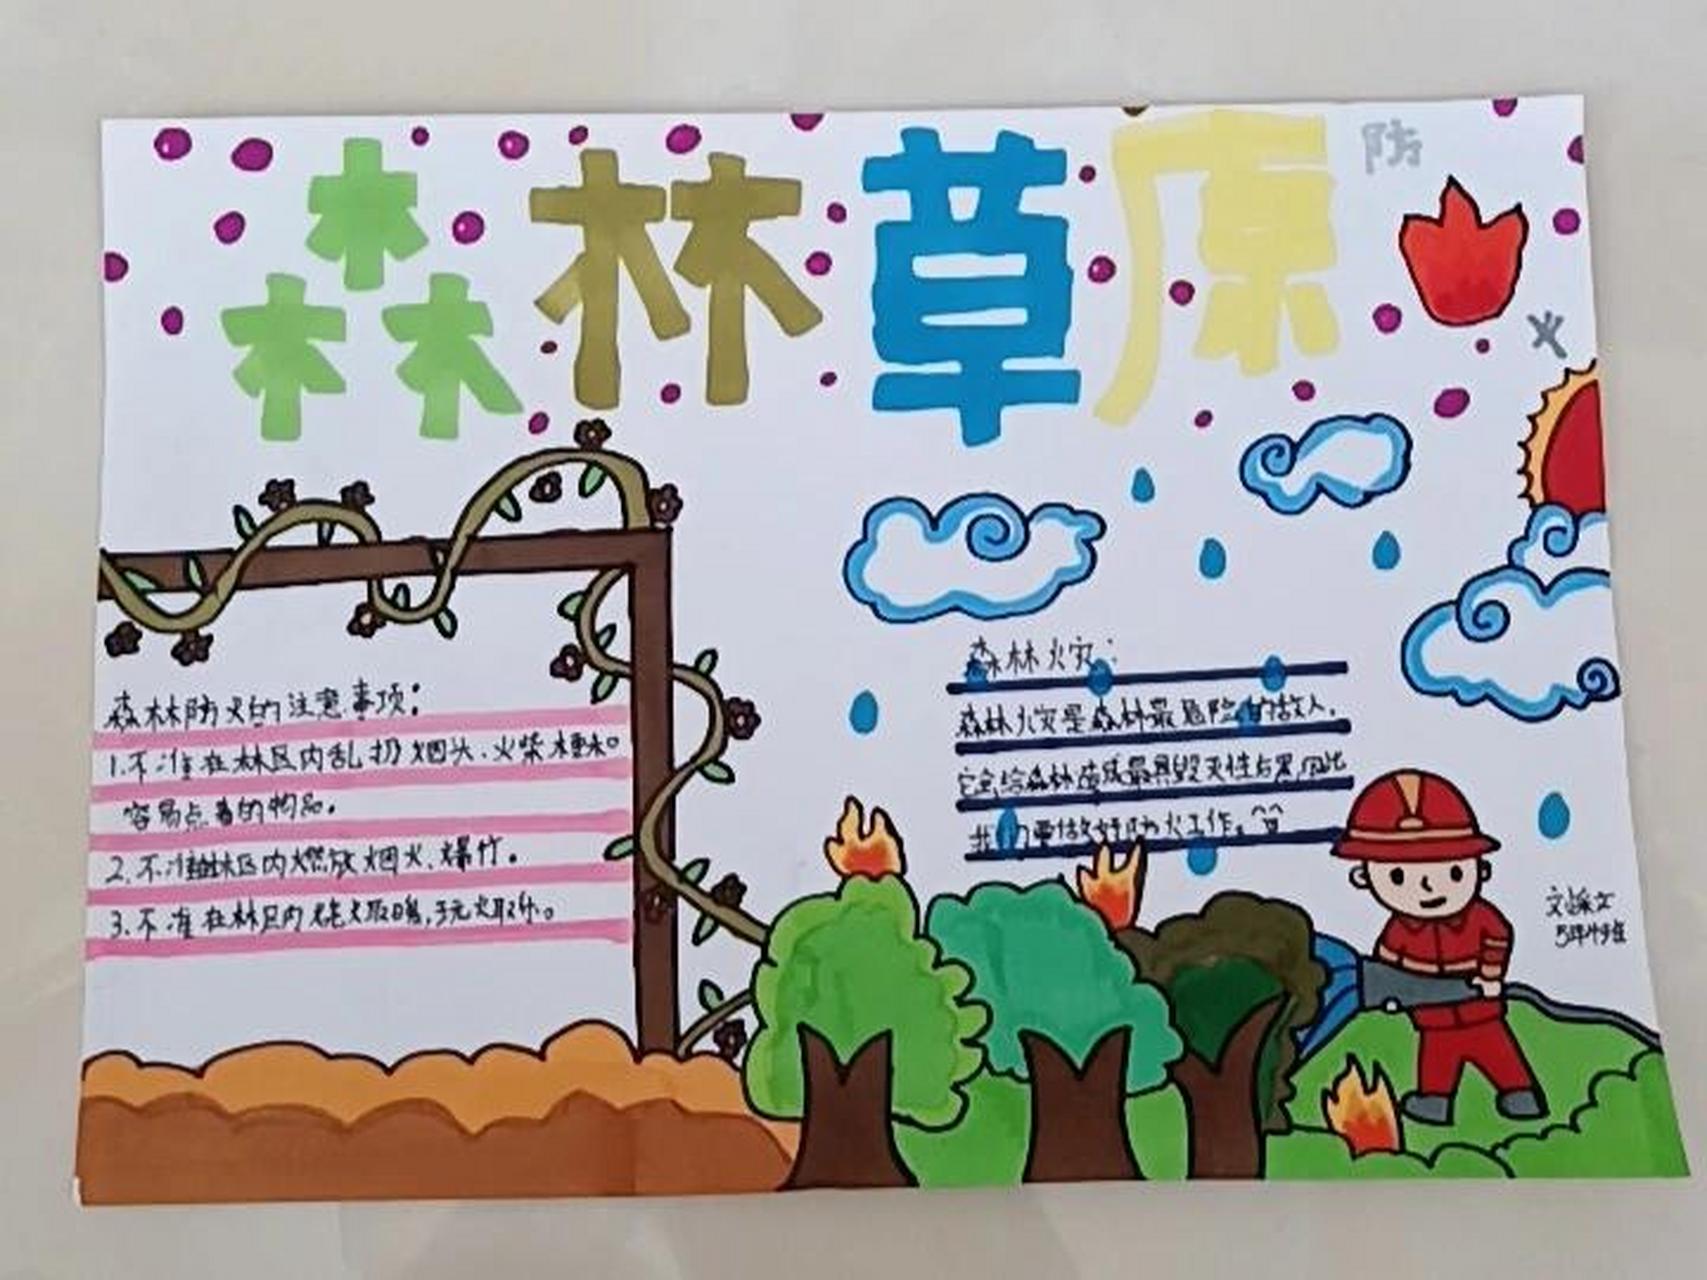 森林草原
防
火
森林防火的注意事项：
1.不准在林区内乱扔烟头、火柴梗和
容易点着的物品。
2.不准林区内燃放烟火、爆竹。
3.不准在林区内烧火取暖，玩火取乐。
森林火灾：
森林火灾是森林最危险的敌人，
它会给森林造成最具毁灭性后果，因此
我们要做好防火工作。
5年4班